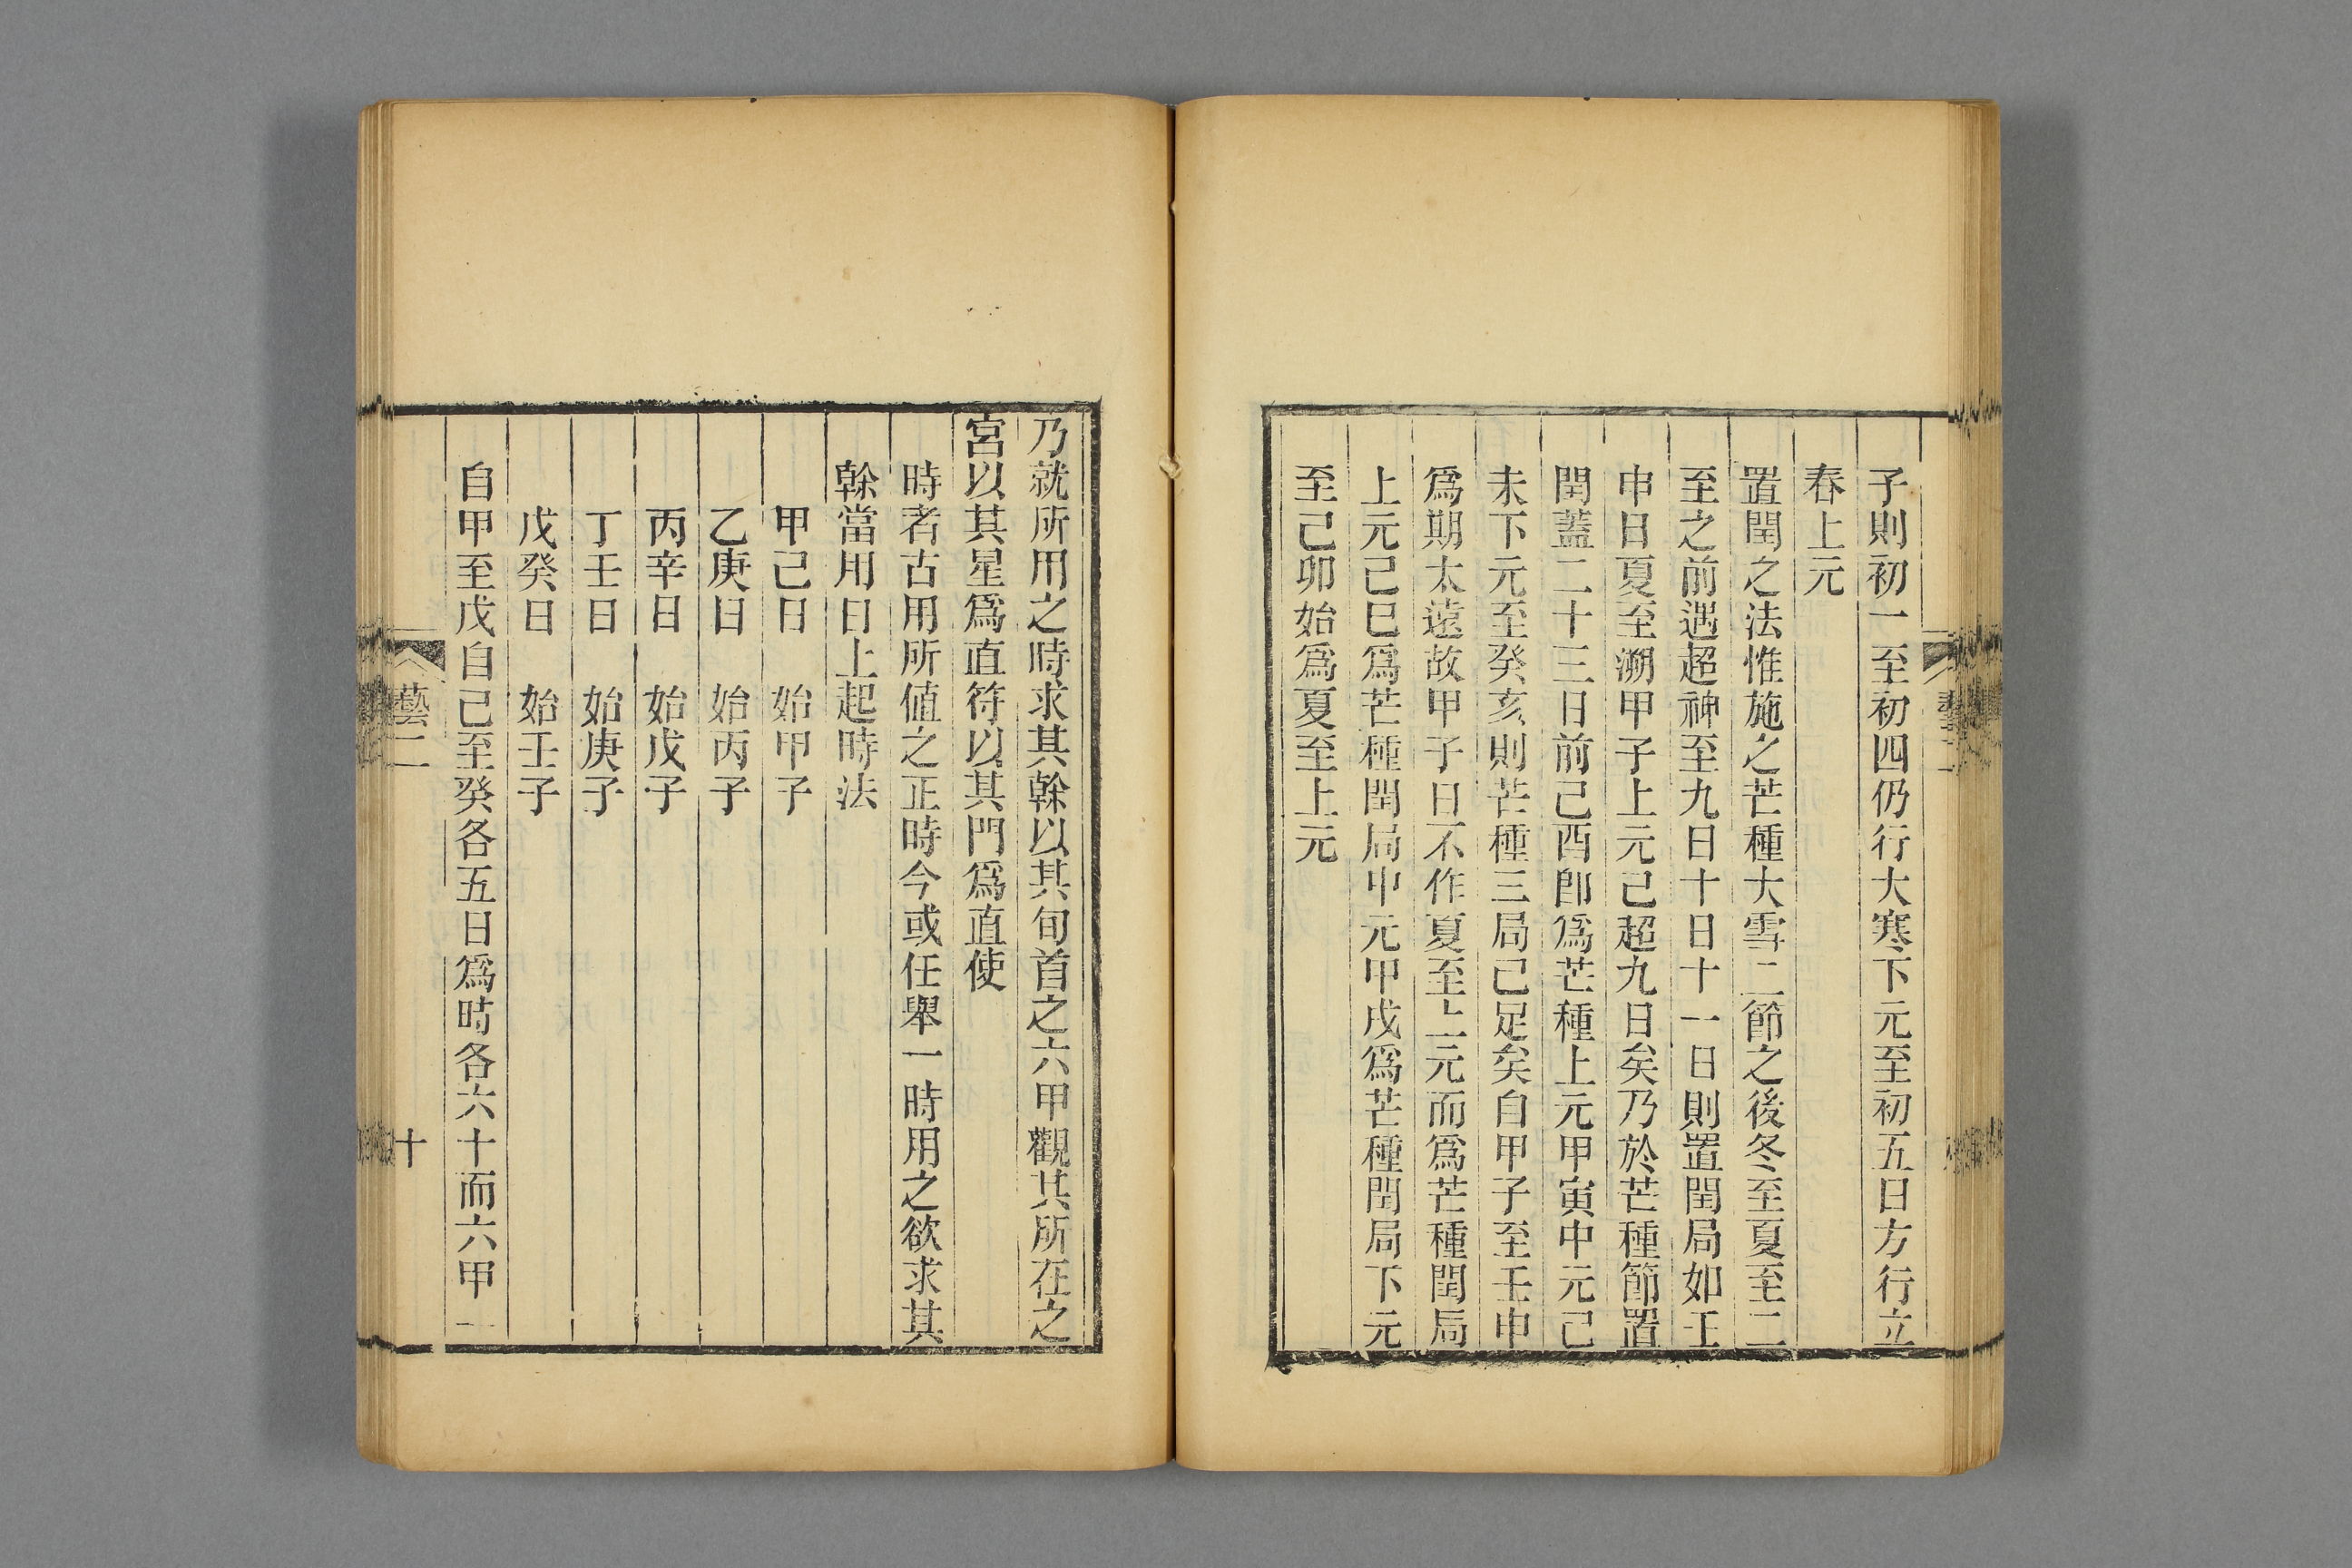 子則初一至初四仍行大寒下元至初五日方行立
春上元
置閏之法惟施之芒種大雪二節之後冬至夏至二
至之前遇超神至九日十日十一日則置閏局如壬
申日夏至溯甲子上元己超九日矣乃於芒種節置
閏蓋二十三日前己酉卽爲芒種上元甲寅中元己
未下元至癸亥則芒種三局己足矣自甲子至壬申
爲期太遠故甲子日不作夏至上元而爲芒種閏局
上元己巳爲芒種閏局中元甲戌爲芒種閏局下元
至己卯始爲夏至上元
乃就所用之時求其榦以其旬首之六甲觀其所在之
宮以其星爲直符以其門爲直使
時者古用所値之正時今或任舉一時用之欲求其
榦當用日上起時法
甲己日　始甲子
乙庚日　始丙子
丙辛日　始戊子
丁壬日　始庚子
戊癸日　始壬子
自甲至戊自己至癸各五日爲時各六十而六甲一
藝二
十